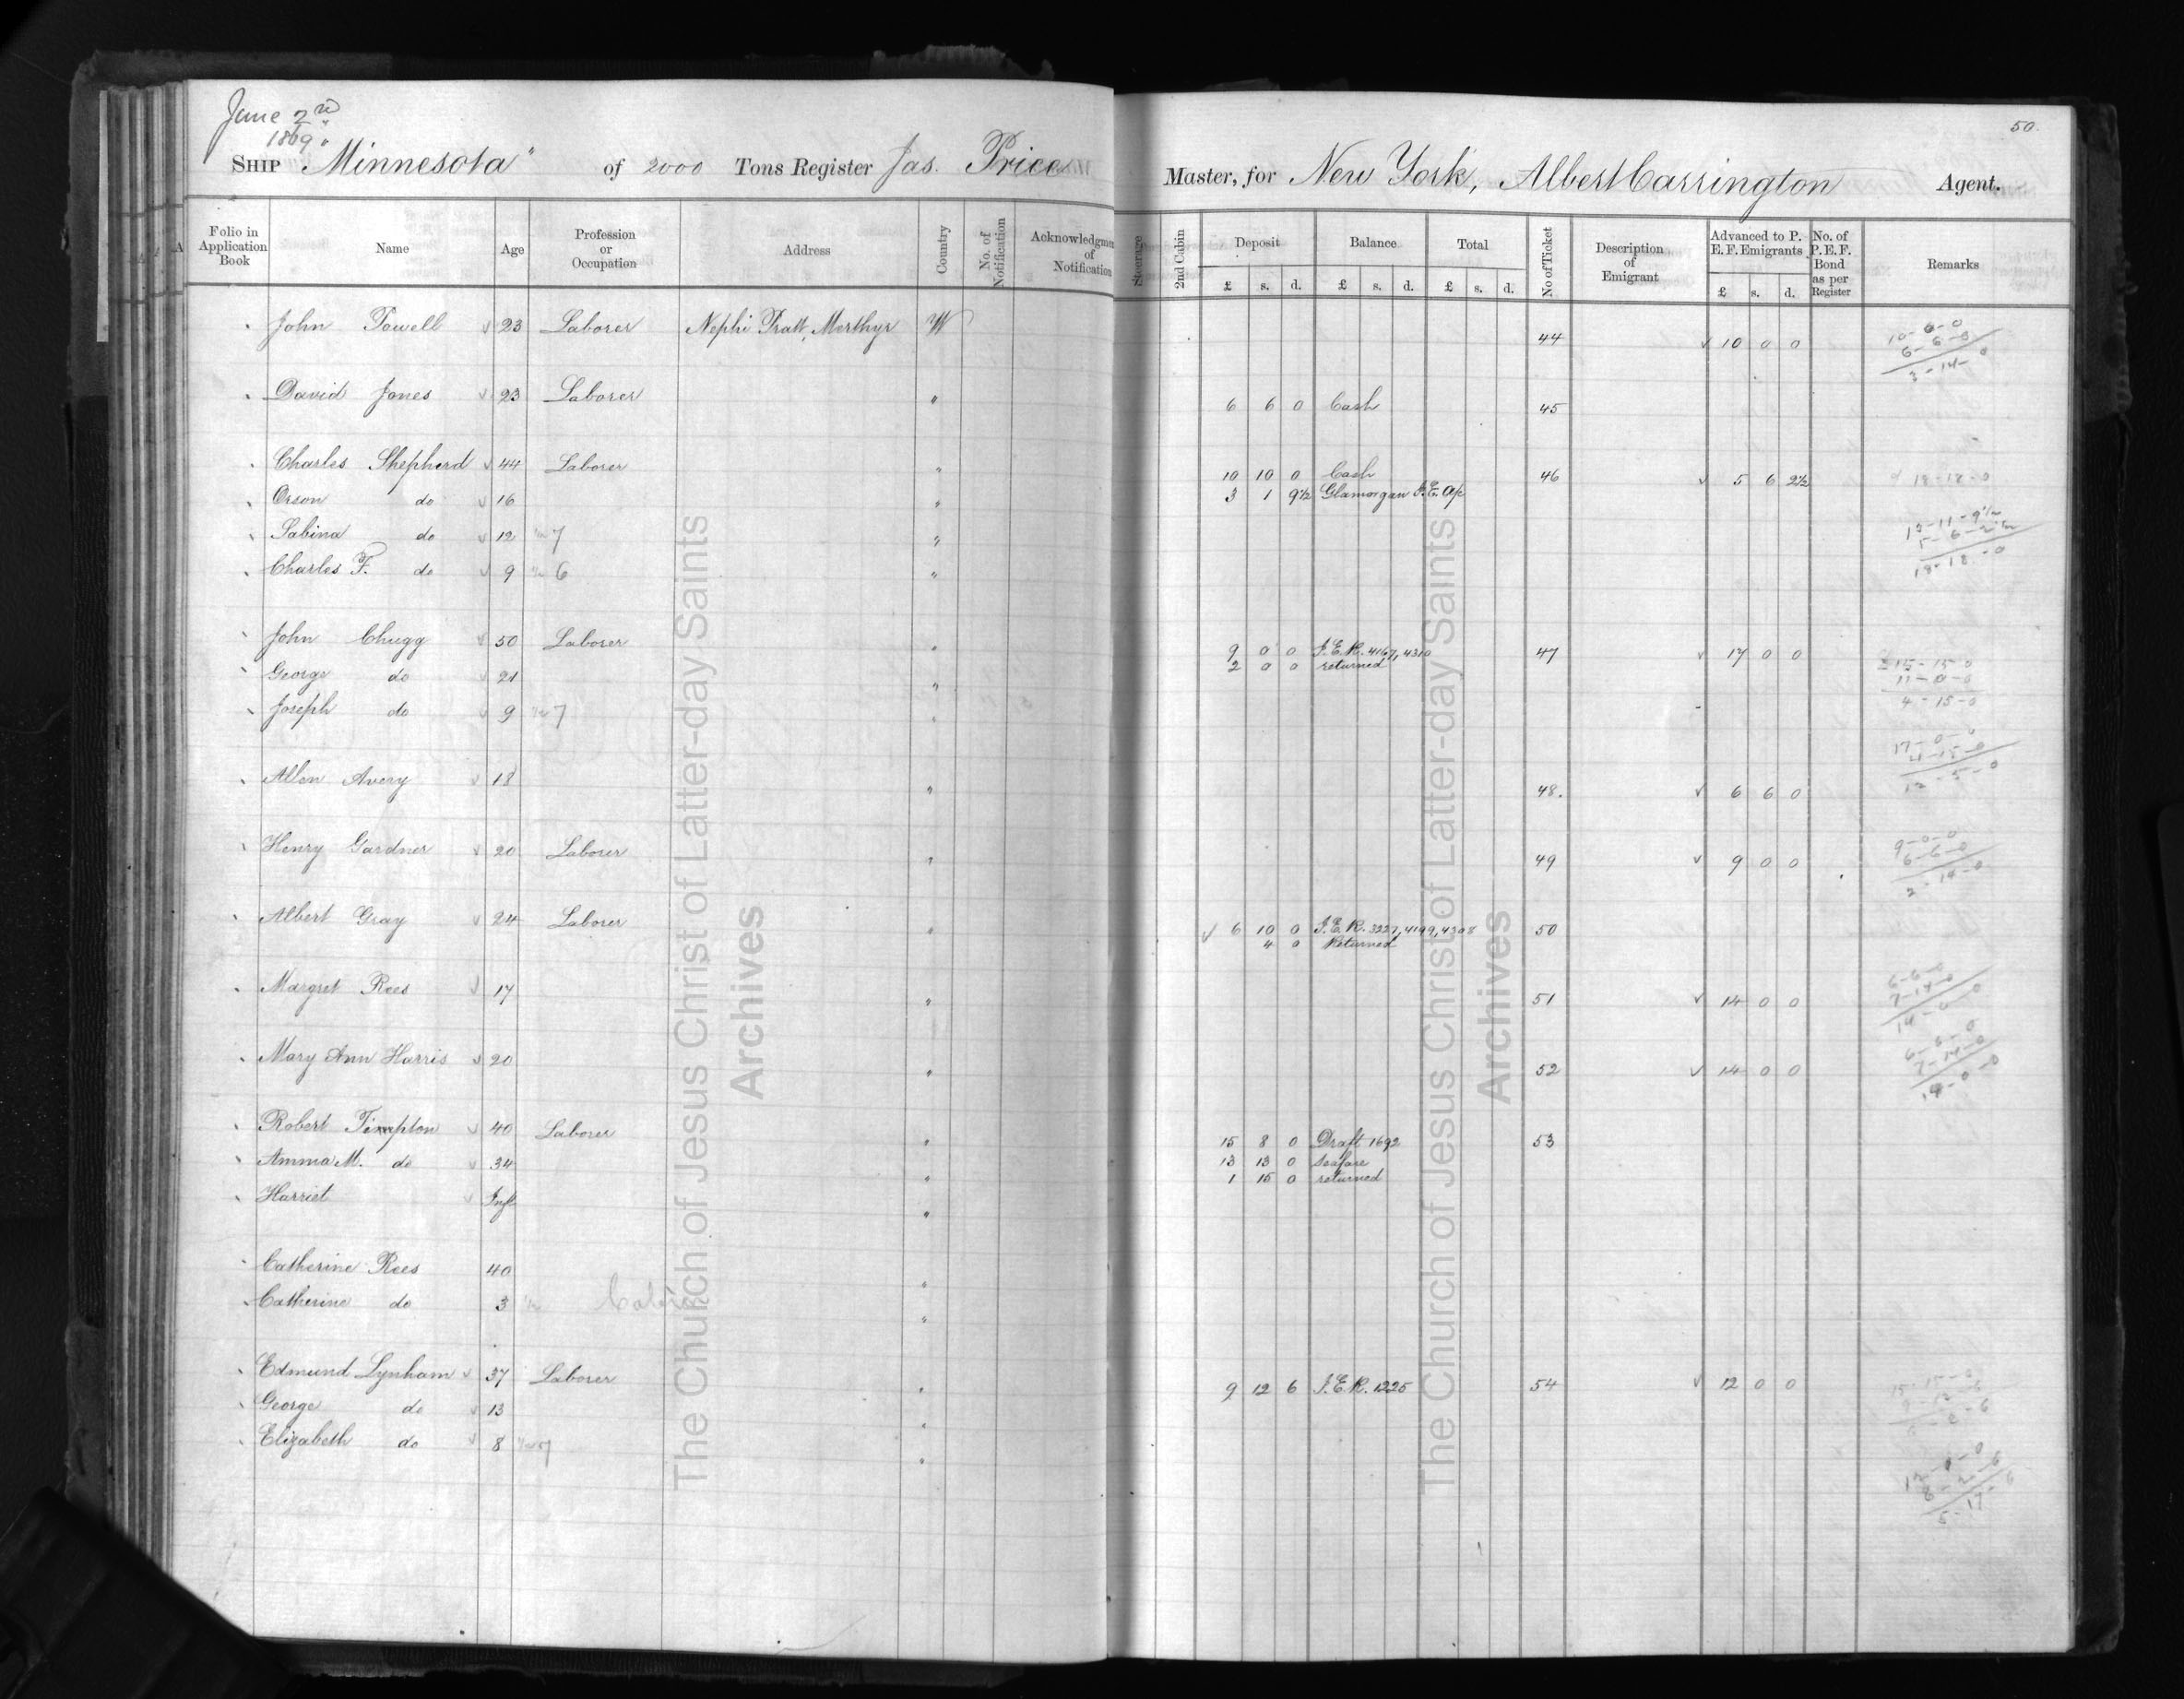 June 2nd
1869.
50.
SHIP "Minnesota" of 2000 Tons Register Jas. Price Master, for New York, Albert Carrington Agent.
Folio in Application Book Name Age Profession or Occupation Address Country No. of Notification Acknowledgment of Notification Steerage 2nd Cabin Deposit Balance Total No of Ticket Description of Emigrant Advanced to P. E. F. Emigrants No. of P. E. F. Bond as per Register Remarks
£ s. d. £ s. d. £ s. d. £ s. d.
John Powell 23 Laborer Nephi Pratt, Merthyr W 44 10 0 0 10-0-0
6-6-0
3-14-0
David Jones 23 Laborer " 6 6 0 Cash 45
Charles Shepherd 44 Laborer " 10 10 0 Cash 46 5 6 2½ 18-18-0
Orson do 16 " 3 1 9½ Glamorgan P.E. a/c
Sabina do 12 7 " 13-11-9½
5-6-2½
18-18-0
Charles F. do 9 6 "
John Chugg 50 Laborer " 9 0 0 I.E.R. 4167, 4310 47 17 0 0
2 0 0 returned
George do 21 " £15-15-0
11-0-0
4-15-0
Joseph do 9 7 "
17-0-0
4-15-0
12-5-0
Allen Avery 18 " 48. 6 6 0
Henry Gardner 20 Laborer " 49 9 0 0 9-0-0
6-6-0
2-14-0
Albert Gray 24 Laborer " 6 10 0 I.E.R. 3327, 4199, 4308 50
4 0 Returned
Margret Rees 17 " 51 14 0 0 6-6-0
7-14-0
14-0-0
Mary Ann Harris 20 " 52 14 0 0 6-6-0
7-14-0
14-0-0
Robert Timpton 40 Laborer " 15 8 0 Draft 1692 53
Amma M. do 34 " 13 13 0 Seafare
Harriet Inft " 1 15 0 returned
Catherine Rees 40 "
Catherine do 3 Cabin "
Edmund Lynham 37 Laborer " 9 12 6 I.E.R. 1225 54 12 0 0 15-15-0
9-12-6
6-2-6
George do 13 "
Elizabeth do 8 7 " 12-0-0
6-2-6
5-17-6
The Church of Jesus Christ of Latter-day Saints
Archives
The Church of Jesus Christ of Latter-day Saints
Archives